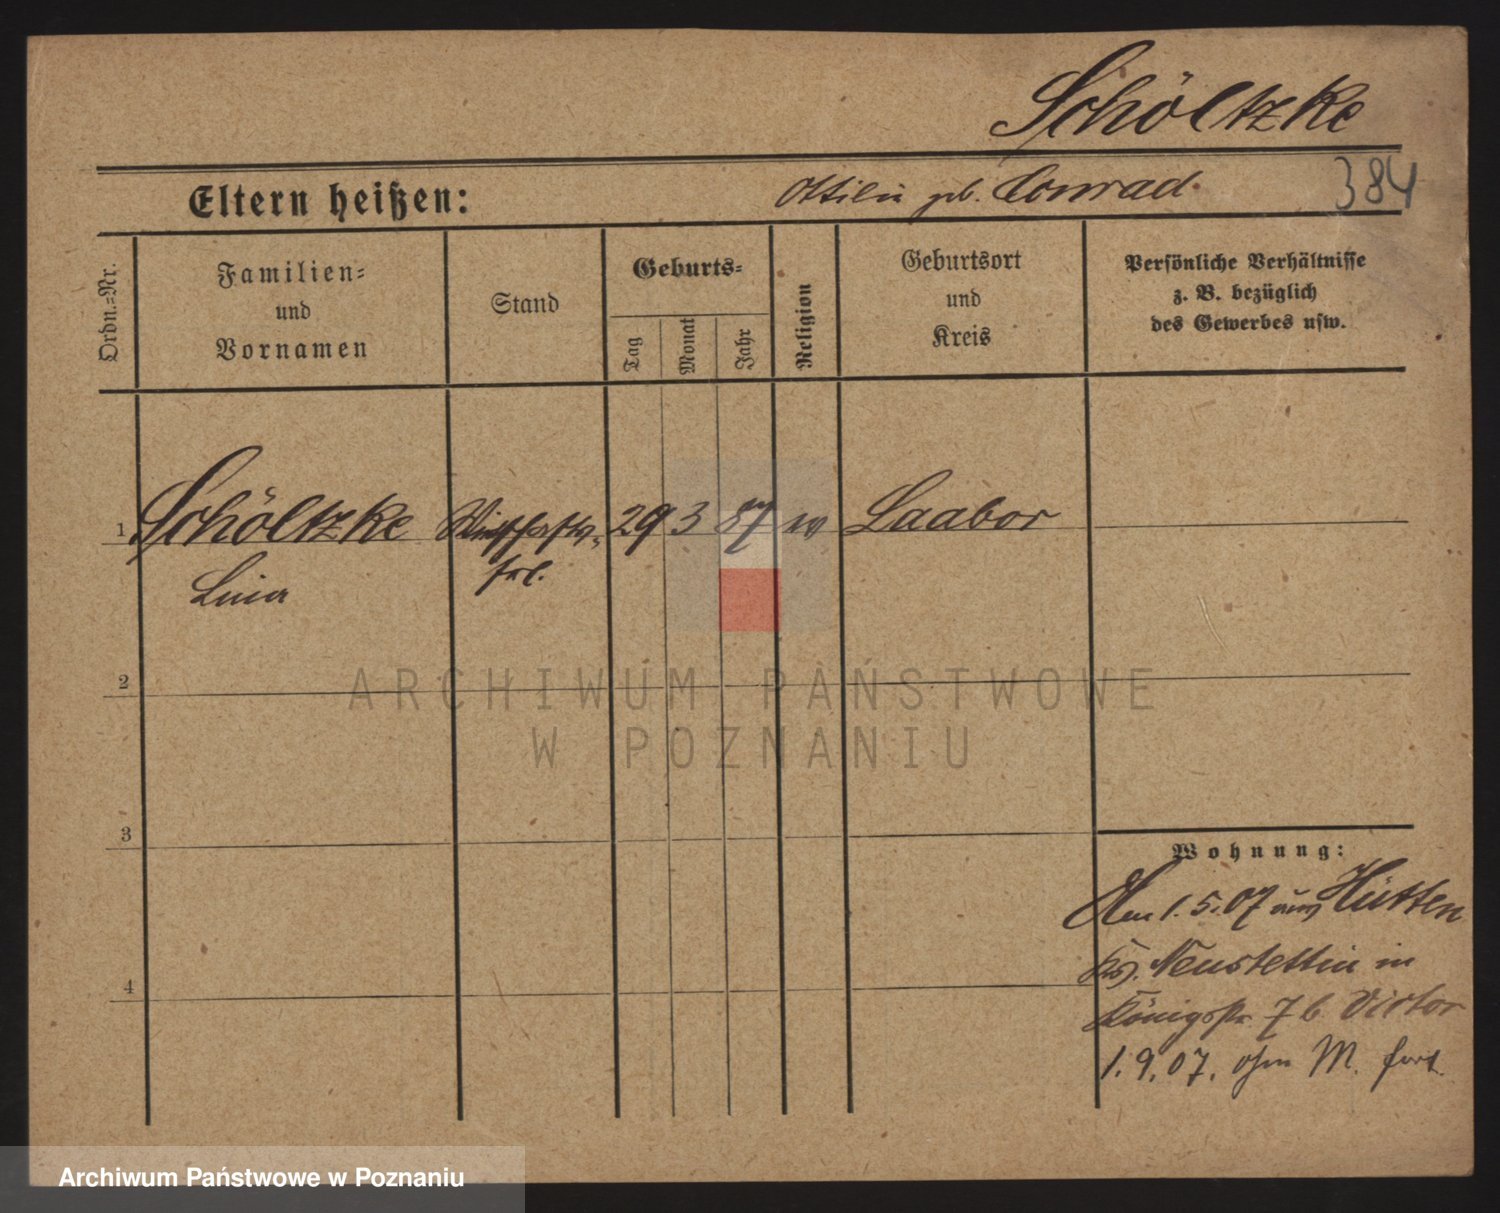 Schöltzke
Eltern heißen: Ottilie geb. Conrad. 384
Ordn.=Nr.
Familien=
und
Vornamen
Stand
Geburts=
Tag
Monat
Jahr
Religion
Geburtsort
und
Kreis
Persönliche Verhältnisse
z. B. bezüglich
des Gewerbes usw.
1 Schöltzke Wirtschafts- 29 3 87 ev Laabor
Lina frl.
2
ARCHIWUM PAŃSTWOWE
W POZNANIU
3
Wohnung:
Am 1.5.07 aus Hütten
Krs. Neustettin in
4
Königsstr 7 b. Victor
1.9.07. ohn M. fort.
Archiwum Państwowe w Poznaniu